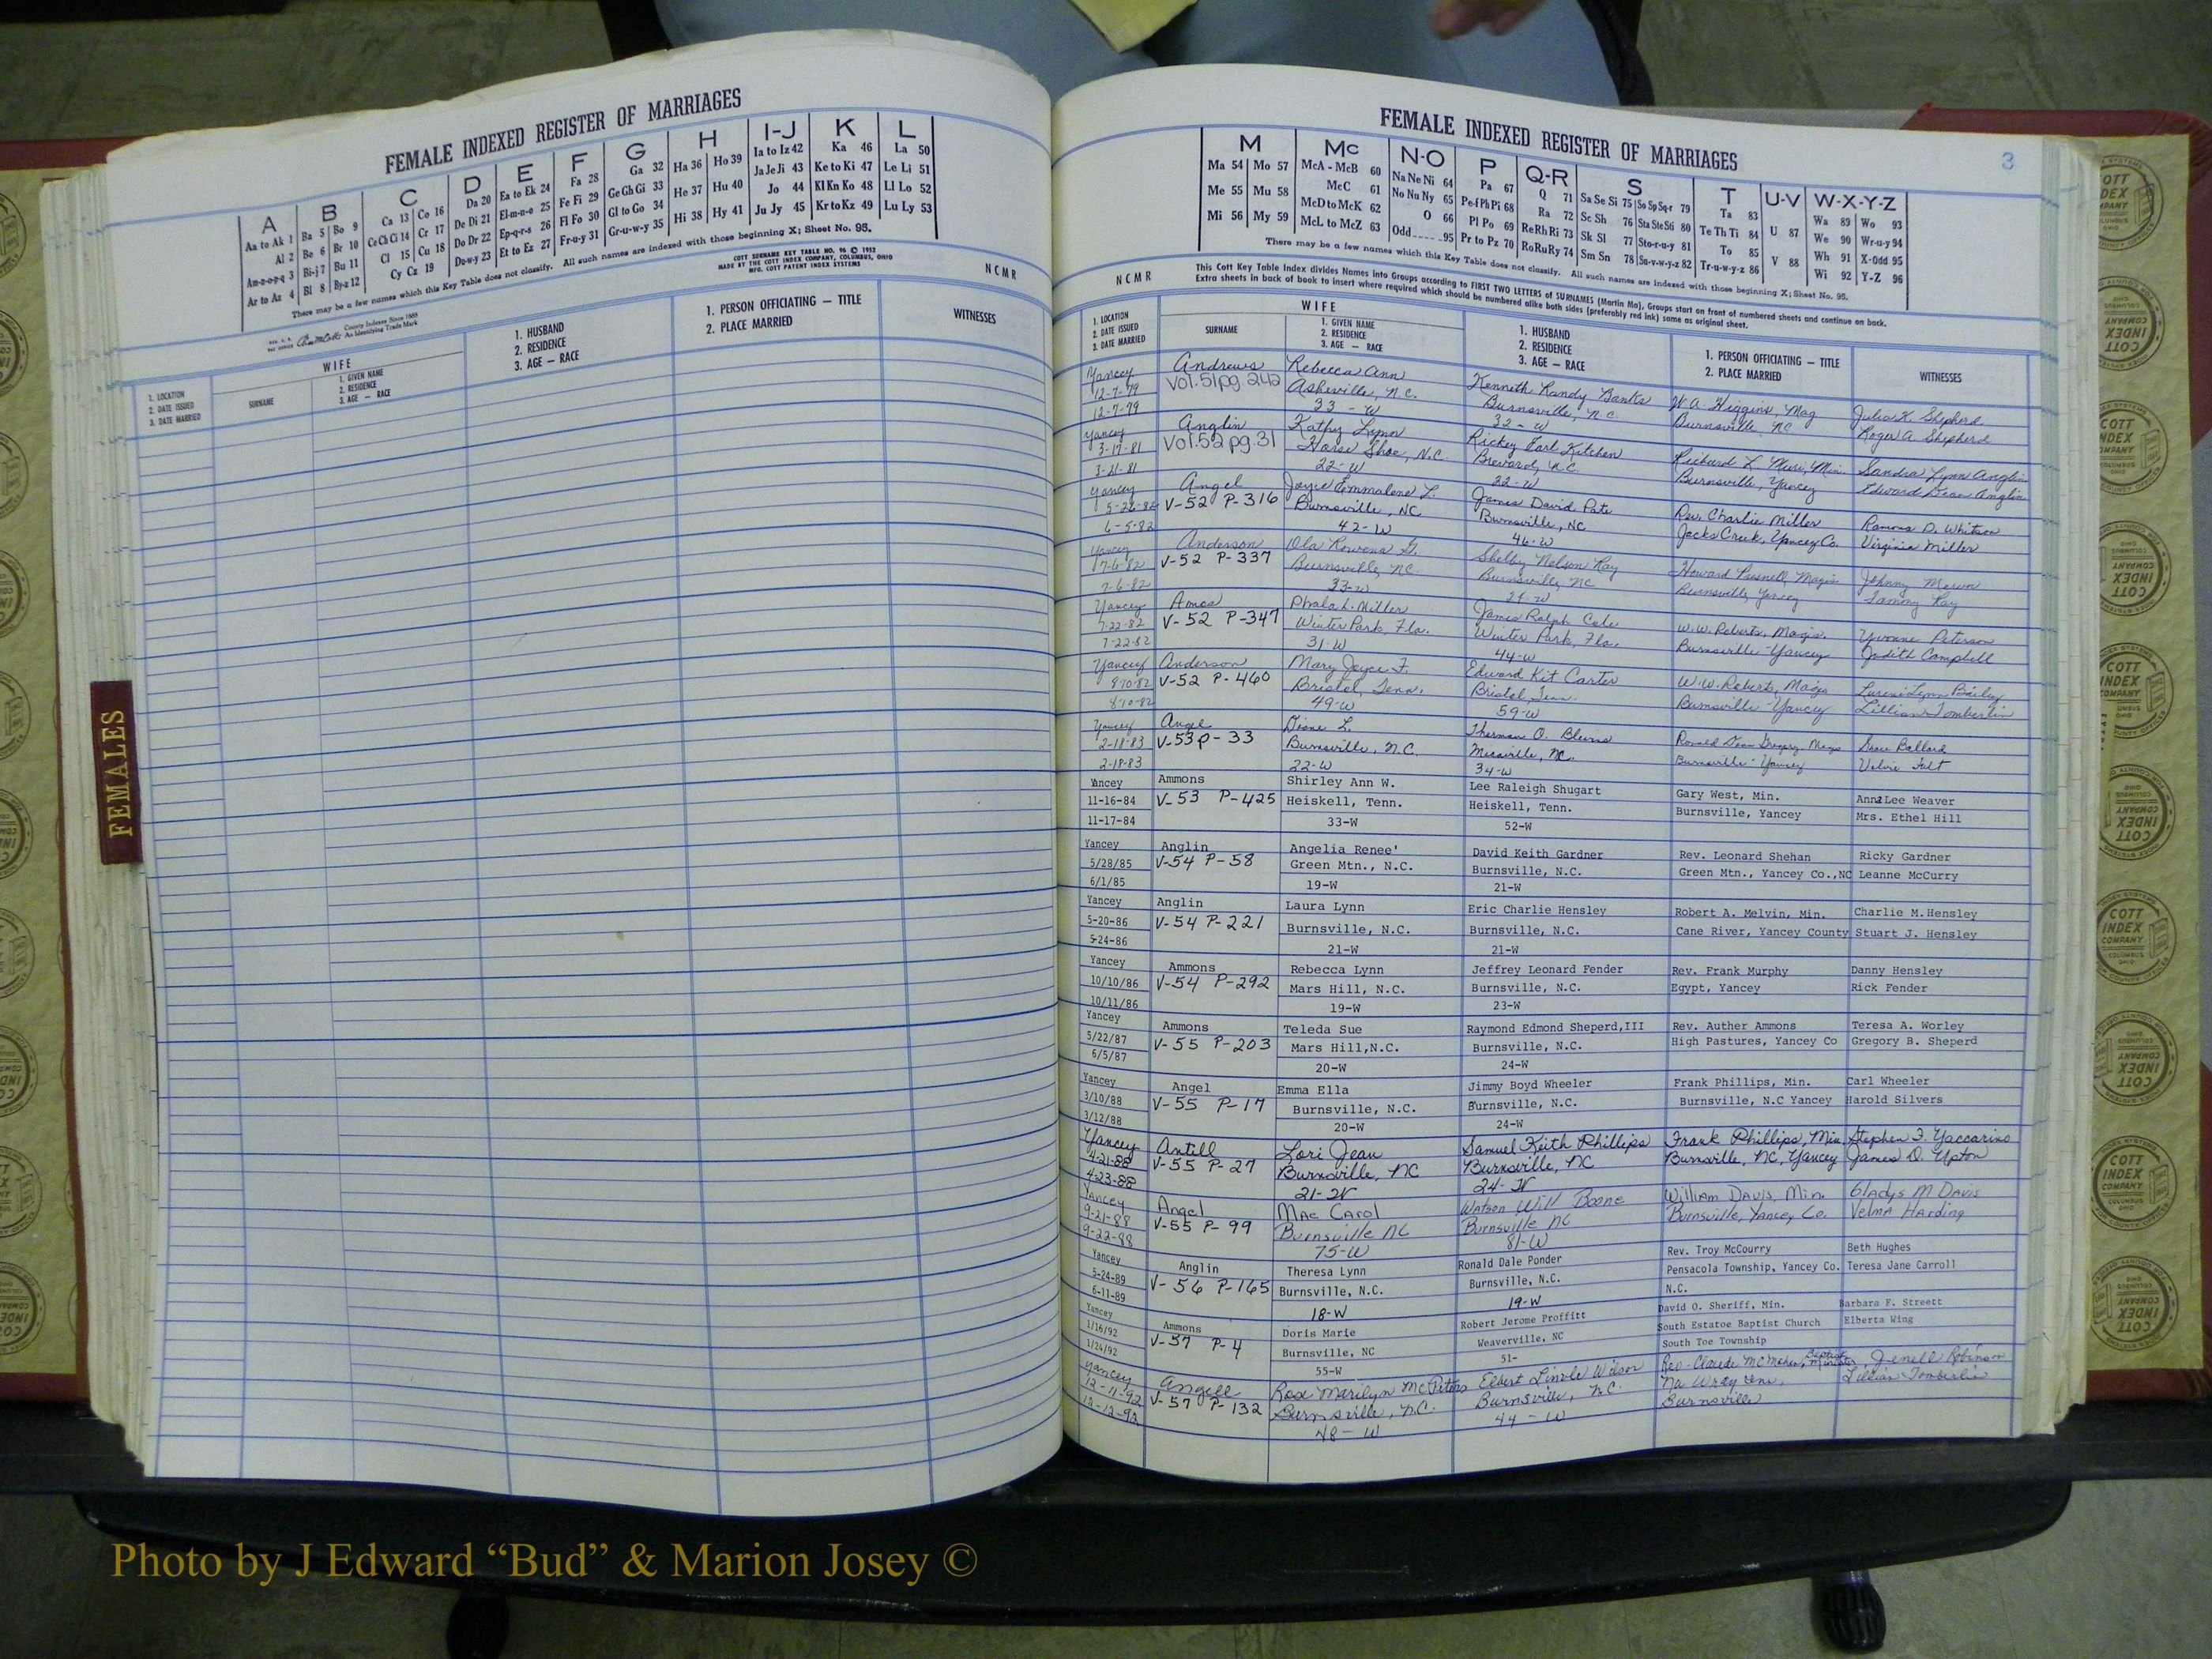 FEMALE INDEXED REGISTER OF MARRIAGES
A B C D E F G H I-J K L
Aa to Ak 1 Ba 5 Bo 9 Ca 13 Co 16 Da 20 Ea to Ek 24 Fa 28 Ga 32 Ha 36 Ho 39 Ia to Iz 42 Ka 46 La 50
Al 2 Be 6 Br 10 Ce Ch Ci 14 Cr 17 De Di 21 El-m-n-o 25 Fe Fi 29 Ge Gh Gi 33 He 37 Hu 40 Ja Je Ji 43 Ke to Ki 47 Le Li 51
Am-n-o-p-q 3 Bi-j 7 Bu 11 Cl 15 Cu 18 Do Dr 22 Ep-q-r-s 26 Fl Fo 30 Gl to Go 34 Hi 38 Hy 41 Jo 44 Kl Kn Ko 48 Ll Lo 52
Ar to Az 4 Bl 8 By-z 12 Cy Cz 19 Du-w-y 23 Et to Ez 27 Fr-u-y 31 Gr-u-w-y 35 Ju Jy 45 Kr to Kz 49 Lu Ly 53
There may be a few names which this Key Table does not classify. All such names are indexed with those beginning X; Sheet No. 95.
COTT SURNAME KEY TABLE NO. 96 © 1952
MADE BY THE COTT INDEX COMPANY, COLUMBUS, OHIO
MFG. COTT PATENT INDEX SYSTEMS
NCMR
County Indexes Since 1888
An Identifying Trade Mark
1. LOCATION
2. DATE ISSUED
3. DATE MARRIED
WIFE
SURNAME
1. GIVEN NAME
2. RESIDENCE
3. AGE — RACE
1. HUSBAND
2. RESIDENCE
3. AGE — RACE
1. PERSON OFFICIATING — TITLE
2. PLACE MARRIED
WITNESSES
FEMALES
FEMALE INDEXED REGISTER OF MARRIAGES
3
M Mc N-O P Q-R S T U-V W-X-Y-Z
Ma 54 Mo 57 McA - McB 60 Na Ne Ni 64 Pa 67 Q 71 Sa Se Si 75 So Sp Sq-r 79 Ta 83 U 87 Wa 89 Wo 93
Me 55 Mu 58 McC 61 No Nu Ny 65 Pe-f Ph Pi 68 Ra 72 Sc Sh 76 Sta Ste Sti 80 Te Th Ti 84 V 88 We 90 Wr-u-y 94
Mi 56 My 59 McD to McK 62 O 66 Pl Po 69 Re Rh Ri 73 Sk Sl 77 Sto-r-u-y 81 To 85 Wh 91 X-Odd 95
McL to McZ 63 Odd 95 Pr to Pz 70 Ro Ru Ry 74 Sm Sn 78 Su-v-w-y-z 82 Tr-u-w-y-z 86 Wi 92 Y-Z 96
There may be a few names which this Key Table does not classify. All such names are indexed with those beginning X; Sheet No. 95.
NCMR
This Cott Key Table Index divides Names into Groups according to FIRST TWO LETTERS of SURNAMES (Martin Ma). Groups start on front of numbered sheets and continue on back.
Extra sheets in back of book to insert where required which should be numbered alike both sides (preferably red ink) same as original sheet.
1. LOCATION
2. DATE ISSUED
3. DATE MARRIED
WIFE
SURNAME
1. GIVEN NAME
2. RESIDENCE
3. AGE — RACE
1. HUSBAND
2. RESIDENCE
3. AGE — RACE
1. PERSON OFFICIATING — TITLE
2. PLACE MARRIED
WITNESSES
Yancey Andrews Rebecca Ann Kenneth Randy Banks W.A. Higgins, Mag Julia K. Shepherd
12-7-79 Vol.51 pg 242 Asheville, N.C. Burnsville, N.C. Burnsville, NC Roger A. Shepherd
12-7-79 33 - W 32 - W
Yancey Anglin Kathy Lynn Rickey Earl Kitchen Richard L. Min. Sandra Lynn Anglin
3-17-81 Vol.52 pg.31 Horse Shoe, N.C. Brevard, N.C. Burnsville, Yancey Edward Dean Anglin
3-21-81 22-W 22-W
Yancey Angel Joyce Emmalene L. James David Pate Rev. Charlie Miller Ramona D. Whitson
5-26-82 V-52 P-316 Burnsville, NC Burnsville, NC Jacks Creek, Yancey Co. Virginia Miller
6-5-82 42-W 46-W
Yancey Anderson Ola Rowena G. Shelby Nelson Ray Howard Presnell, Magis Johnny
7-6-82 V-52 P-337 Burnsville, NC. Burnsville, NC Burnsville, Yancey Tammy Ray
7-6-82 33-W
Yancey Amea Phala L. Miller James Ralph Cole W.W. Roberts, Magis. Yvonne Peterson
7-22-82 V-52 P-347 Winter Park, Fla. Winter Park, Fla. Burnsville-Yancey Judith Campbell
7-22-82 31-W 44-W
Yancey Anderson Mary Joyce F. Edward Kit Carter W.W. Roberts, Magis Lurene Lynn Bailey
8-10-82 V-52 P-460 Bristol, Tenn. Bristol, Tenn. Burnsville-Yancey Lillian Tomberlin
8-10-82 49-W 59-W
Yancey Angel Diane L. Thurman O. Blevins Ronald Dean Gregory Magis Ballard
2-18-83 V-53 P-33 Burnsville, N.C. Micaville, NC. Burnsville-Yancey
2-18-83 22-W 34-W
Yancey Ammons Shirley Ann W. Lee Raleigh Shugart Gary West, Min. Anna Lee Weaver
11-16-84 V-53 P-425 Heiskell, Tenn. Heiskell, Tenn. Burnsville, Yancey Mrs. Ethel Hill
11-17-84 33-W 52-W
Yancey Anglin Angelia Renee' David Keith Gardner Rev. Leonard Shehan Ricky Gardner
5/28/85 V-54 P-58 Green Mtn., N.C. Burnsville, N.C. Green Mtn., Yancey Co.,NC Leanne McCurry
6/1/85 19-W 21-W
Yancey Anglin Laura Lynn Eric Charlie Hensley Robert A. Melvin, Min. Charlie M.Hensley
5-20-86 V-54 P-221 Burnsville, N.C. Burnsville, N.C. Cane River, Yancey County Stuart J. Hensley
5-24-86 21-W 21-W
Yancey Ammons Rebecca Lynn Jeffrey Leonard Fender Rev. Frank Murphy Danny Hensley
10/10/86 V-54 P-292 Mars Hill, N.C. Burnsville, N.C. Egypt, Yancey Rick Fender
10/11/86 19-W 23-W
Yancey Ammons Teleda Sue Raymond Edmond Sheperd,III Rev. Auther Ammons Teresa A. Worley
5/22/87 V-55 P-203 Mars Hill,N.C. Burnsville, N.C. High Pastures, Yancey Co Gregory B. Sheperd
6/5/87 20-W 24-W
Yancey Angel Emma Ella Jimmy Boyd Wheeler Frank Phillips, Min. Carl Wheeler
3/10/88 V-55 P-17 Burnsville, N.C. Burnsville, N.C. Burnsville, N.C Yancey Harold Silvers
3/12/88 20-W 24-W
Yancey Antill Lori Jean Samuel Keith Phillips Frank Phillips, Min. Stephen F. Yaccarino
4-21-88 V-55 P-27 Burnsville, NC Burnsville, NC Burnsville, NC, Yancey James D. Upton
4-23-88 21-W 24-W
Yancey Angel Mae Carol Watson Will Boone William Davis, Min. Gladys M Davis
9-21-88 V-55 P-99 Burnsville NC Burnsville NC Burnsville, Yancey Co. Velma Harding
9-22-88 75-W 81-W
Yancey Anglin Theresa Lynn Ronald Dale Ponder Rev. Troy McCourry Beth Hughes
5-24-89 V-56 P-165 Burnsville, N.C. Burnsville, N.C. Pensacola Township, Yancey Co. Teresa Jane Carroll
6-11-89 18-W 19-W N.C.
Yancey Ammons Doris Marie Robert Jerome Proffitt David O. Sheriff, Min. Barbara F. Streett
1/16/92 V-57 P-4 Burnsville, NC Weaverville, NC South Estatoe Baptist Church Elberta Wing
1/24/92 55-W 51- South Toe Township
Yancey Angell Rose Marilyn McPeters Elbert Linvle Wilson Rev. Claude McMahan, Baptist Minister Jenell Robinson
12-11-92 V-57 P-132 Burnsville, N.C. Burnsville, N.C. Lillian Tomberlin
12-12-92 48-W 44-W Burnsville
Photo by J Edward “Bud” & Marion Josey ©